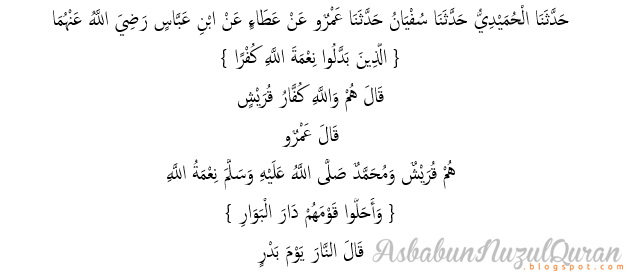 حَدَّثَنَا الْحُمَيْدِيُّ حَدَّثَنَا سُفْيَانُ حَدَّثَنَا عَمْرٌو عَنْ عَطَاءٍ عَنْ ابْنِ عَبَّاسٍ رَضِيَ اللَّهُ عَنْهُمَا
{ الَّذِينَ بَدَّلُوا نِعْمَةَ اللَّهِ كُفْرًا }
قَالَ هُمْ وَاللَّهِ كُفَّارُ قُرَيْشٍ
قَالَ عَمْرٌو
هُمْ قُرَيْشٌ وَمُحَمَّدٌ صَلَّى اللَّهُ عَلَيْهِ وَسَلَّمَ نِعْمَةُ اللَّهِ
{ وَأَحَلُّوا قَوْمَهُمْ دَارَ الْبَوَارِ }
قَالَ النَّارَ يَوْمَ بَدْرٍ
AsbabunNuzulQuran
blogspot.com